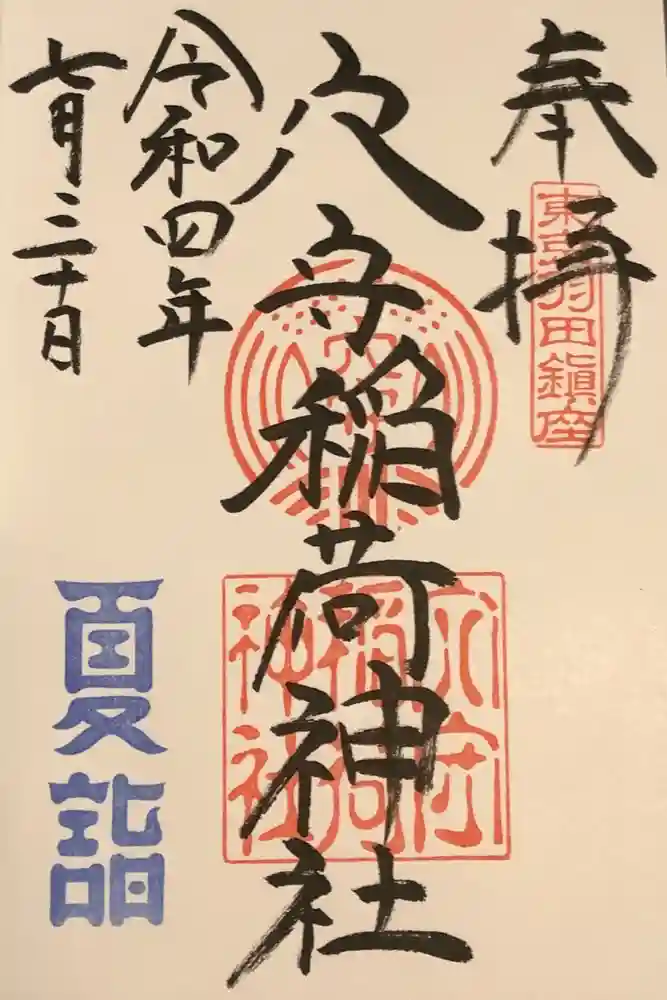 奉拝
東京羽田鎮座
穴守稲荷神社
穴守
稲荷
神社
令和四年
七月三十日
夏詣